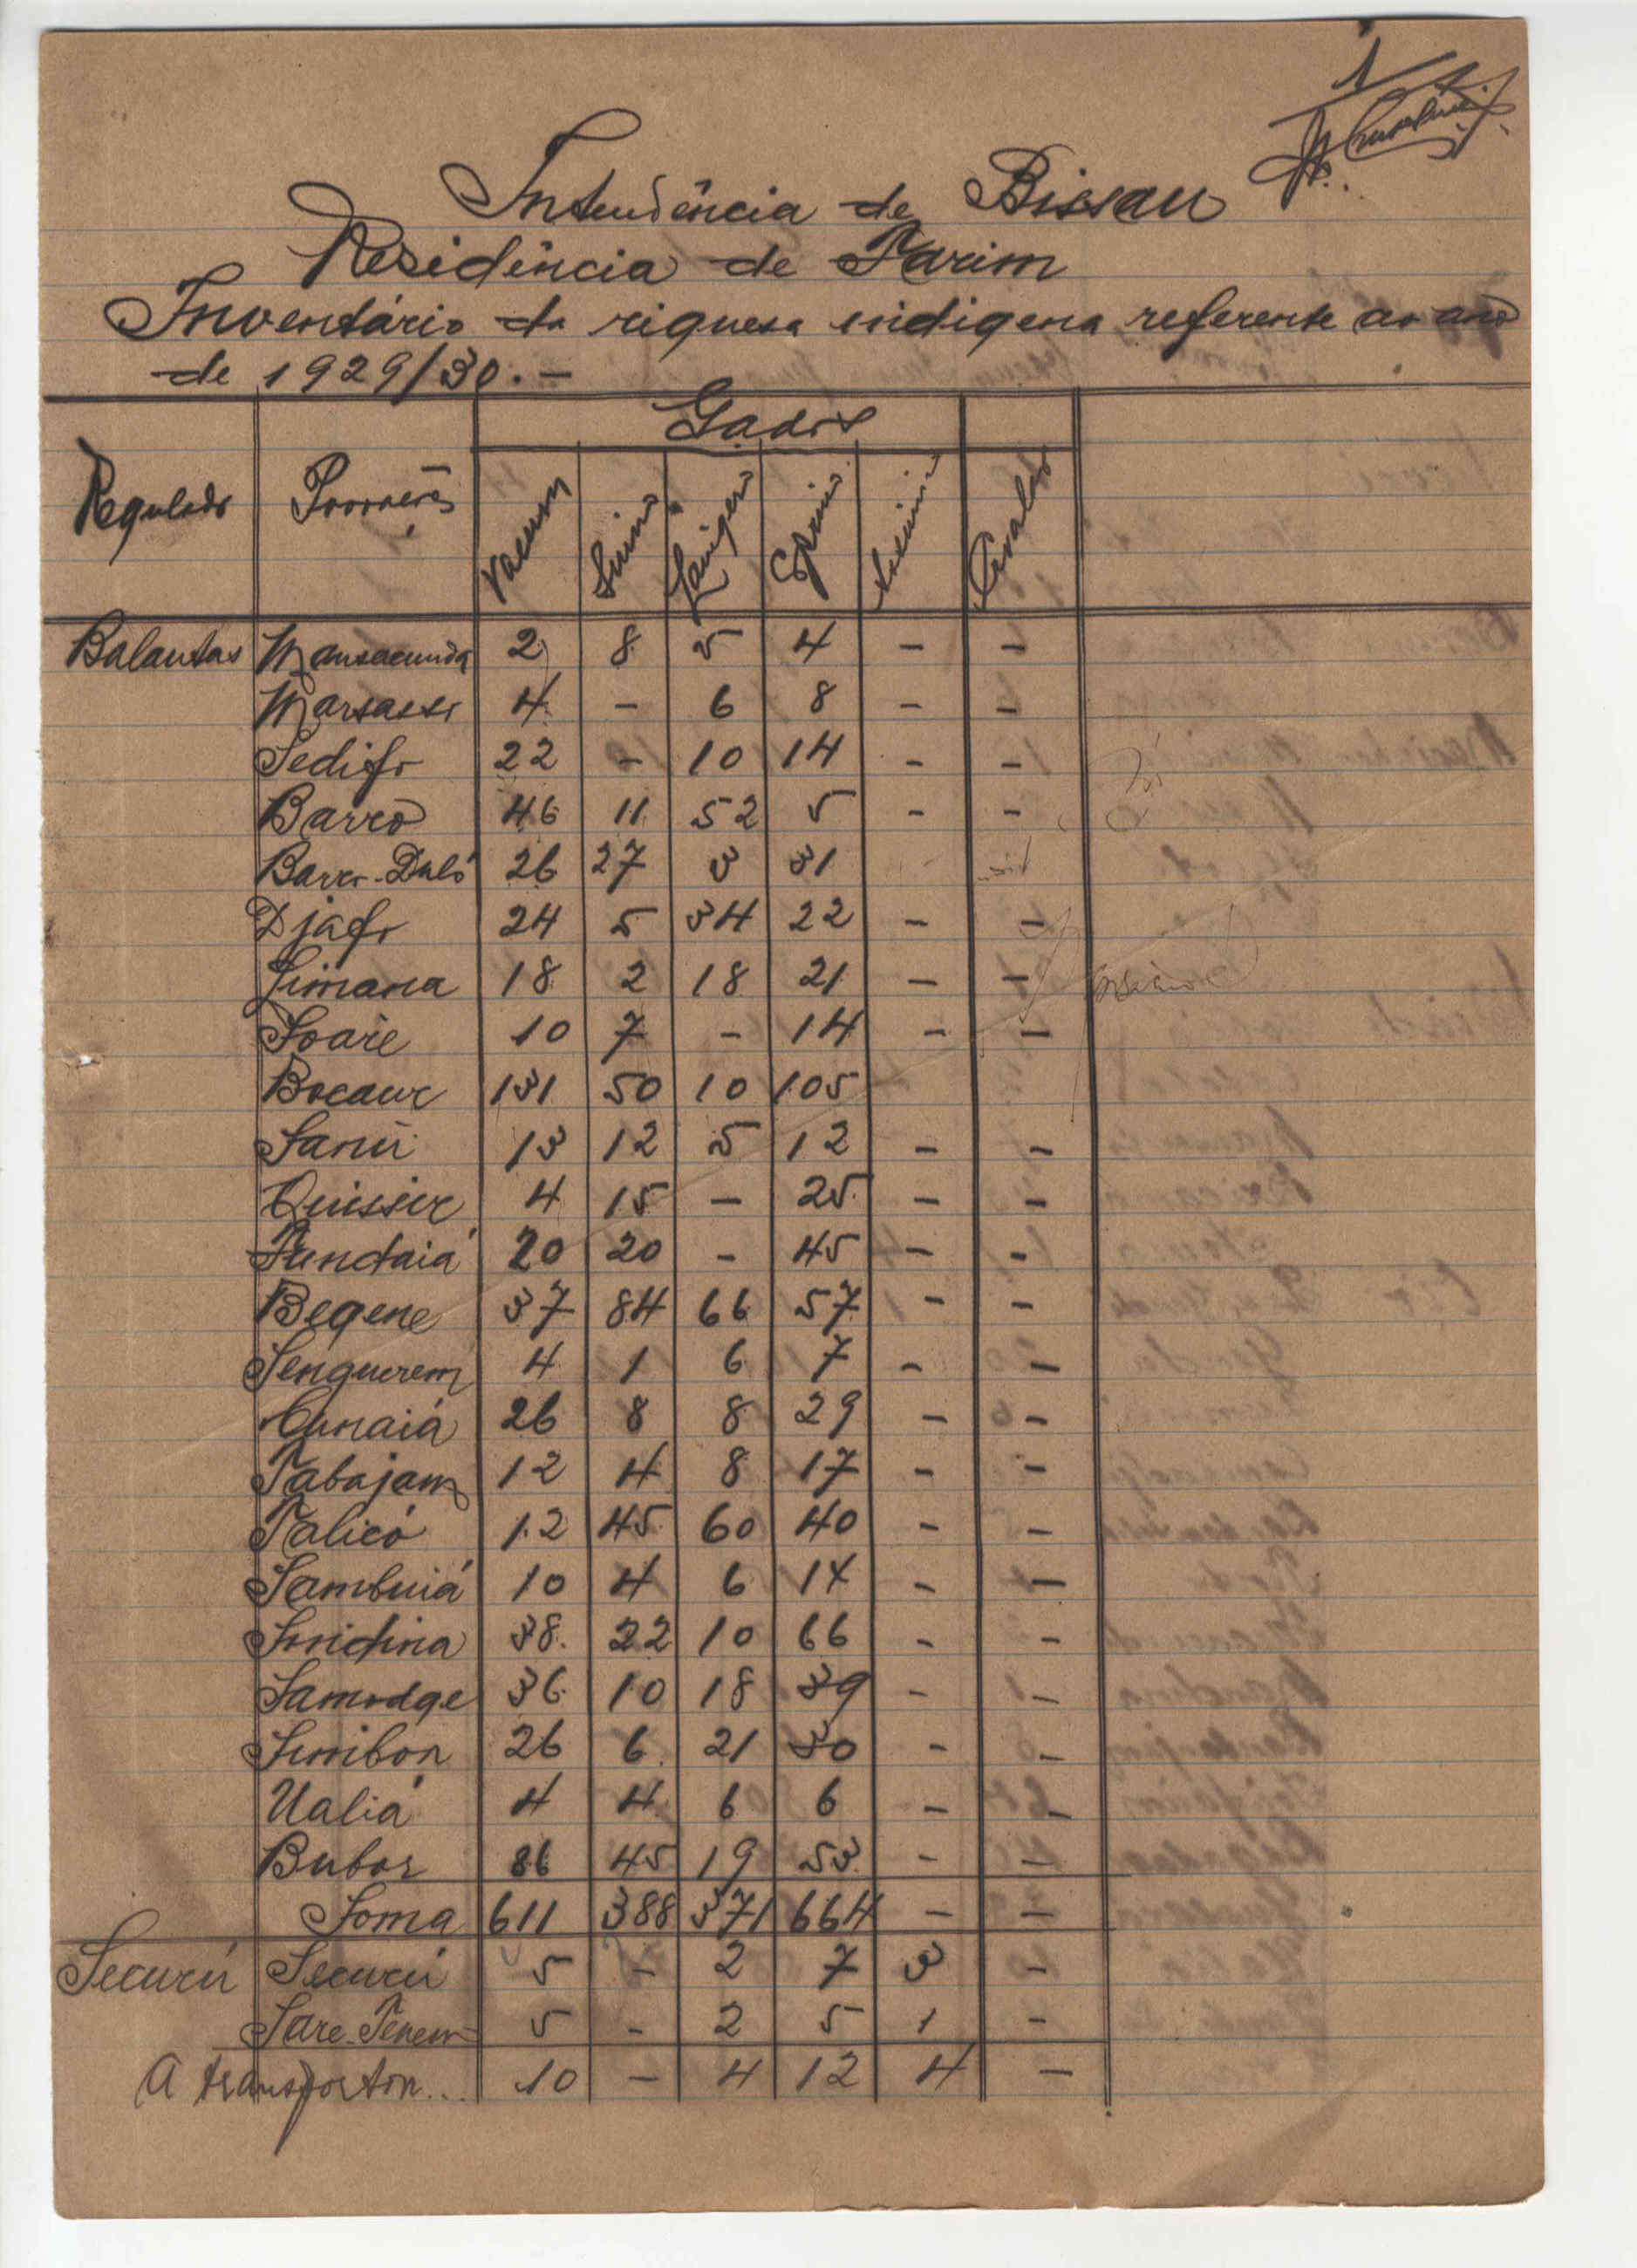 1
Intendência de Bissau
Residência de Farim
Inventário da riquesa indigena referente ao ano
de 1929/30. —
Gados
Regulado Povoações Vacum Suino Lanigero Caprino Asinino Cavalar
Balantas Mansacunda 2 8 5 4 — —
Marsasso 4 — 6 8 — —
Sedifo 22 — 10 14 — —
Barro 46 11 52 5 — —
Barro-Daló 26 27 3 31
Djafo 24 5 34 22 — —
Simana 18 2 18 21 — —
Soare 10 7 — 14 — —
Bocaur 131 50 10 105
Sanú 13 12 5 12 — —
Quissir 4 15 — 25 — —
Functaiá 20 20 — 45 — —
Begene 37 84 66 57 — —
Senguerem 4 1 6 7 — —
Cunaiá 26 8 8 29 — —
Tabajam 12 4 8 17 — —
Talicó 12 45 60 40 — —
Sambuiá 10 4 6 14 — —
Sindina 38 22 10 66 — —
Samodge 36 10 18 39 — —
Simbon 26 6 21 30 — —
Ualiá 4 4 6 6 — —
Bubor 86 45 19 53 — —
Soma 611 388 371 664 — —
Secucú Secucú 5 — 2 7 3 —
Sare-Tenem 5 — 2 5 1 —
A transportar... 10 — 4 12 4 —